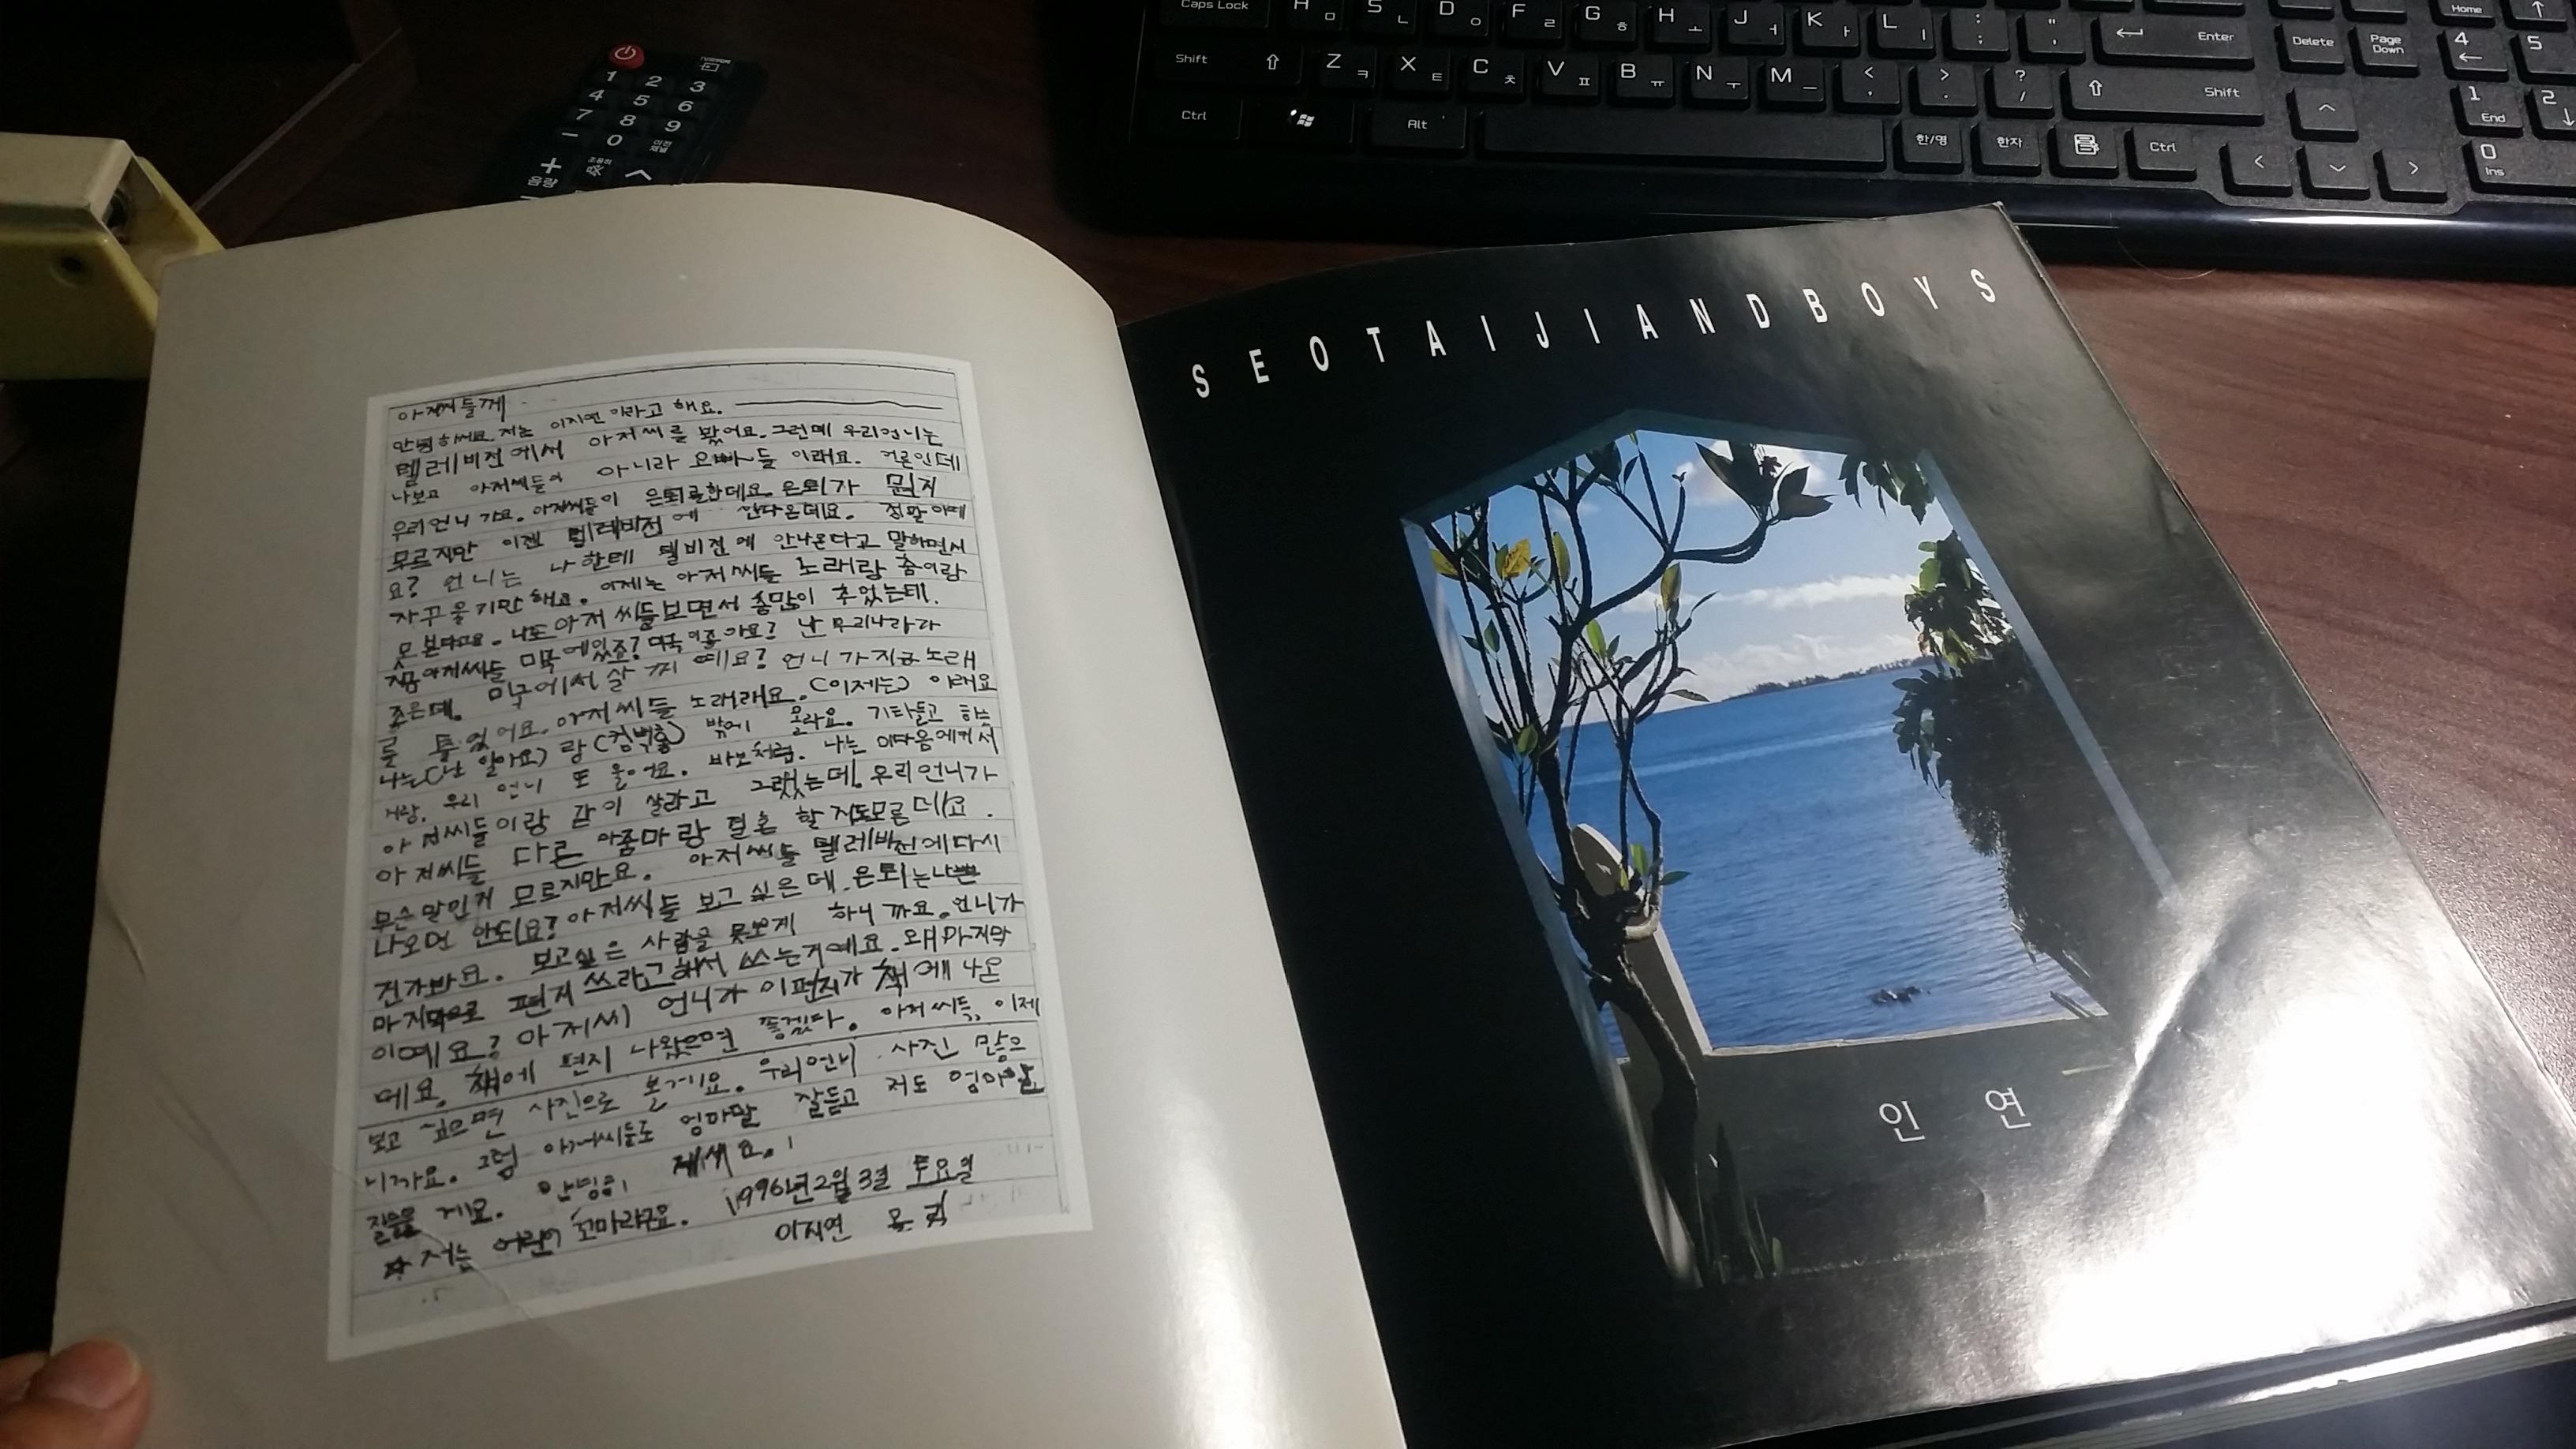 아저씨들께
안녕하세요. 저는 이지연이라고 해요.
텔레비전에서 아저씨를 봤어요. 그런데 우리언니는
나보고 아저씨들이 아니라 오빠들 이래요. 어른인데
우리언니가요. 아저씨들이 은퇴를한데요. 은퇴가 뭔지
모르지만 이젠 텔레비전에 안나온데요. 정말이예
요? 언니는 나한테 텔비전에 안나온다고 말하면서
자꾸울기만 해요. 이제는 아저씨들 노래랑 춤이랑
못본다고요. 나도 아저씨들보면서 춤많이 추었는데.
지금아저씨들 미국에있죠? 미국이좋아요? 난 우리나라가
조은데. 미국에서 살꺼예요? 언니가지금노래
를 틀었어요. 아저씨들 노래래요. (이제는) 이래요
나는 (난 알아요)랑 (컴백홈) 밖에 몰라요. 기타들고 하는
거랑. 우리 언니 또 울어요. 바보처럼. 나는 이다음에커서
아저씨들이랑 같이 살라고 그랬는데. 우리언니가
아저씨들 다른 아줌마랑 결혼 할지도모른데요.
무슨말인지 모르지만요. 아저씨들 텔레비전에다시
나오면 안되요? 아저씨들 보고싶은데. 은퇴는나쁜
건가봐요. 보고싶은 사람을 못보게 하니까요. 언니가
마지막으로 편지 쓰라고해서 쓰는거예요. 왜마지막
이예요? 아저씨 언니가 이편지가 책에 나온
데요. 책에 편지 나왔으면 좋겠다. 아저씨들, 이제
보고싶으면 사진으로 볼게요. 우리언니 사진 많으
니까요. 그럼 아저씨들도 엄마말 잘듣고 저도 엄마말
잘들을게요. 안녕히 계세요.
저는 어린이 꼬마라구요. 1996년2월3일 토요일
이지연 올림
SEOTAIJIANDBOYS
인 연
Caps Lock
H ㅁ S ㄴ D ㅇ F ㄹ G ㅎ H ㅗ J ㅓ K ㅏ L ㅣ : ; " ' Enter
Shift Z ㅋ X ㅌ C ㅊ V ㅍ B ㅠ N ㅜ M ㅡ < , > . ? / Shift
Ctrl Alt 한/영 한자 Ctrl
Delete Page Down Home
4 5
1 End 2
0 Ins
1 2 3
4 5 6
7 8 9
− 0 이전 채널
+ 조용히
음량